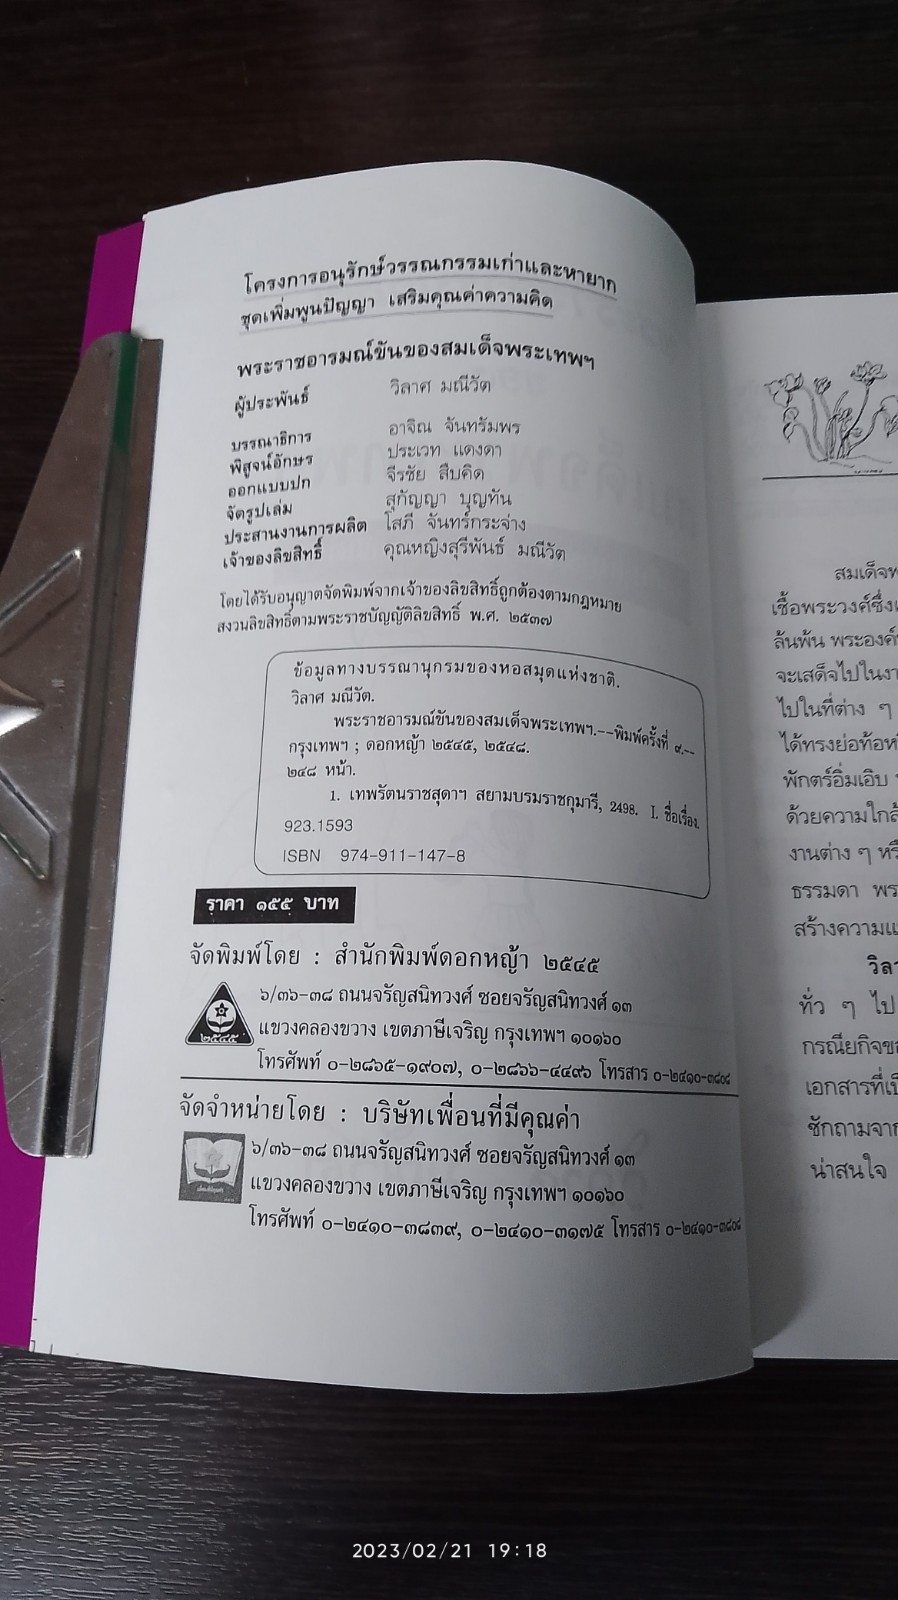 โครงการอนุรักษ์วรรณกรรมเก่าและหายาก
ชุดเพิ่มพูนปัญญา เสริมคุณค่าความคิด
พระราชอารมณ์ขันของสมเด็จพระเทพฯ
ผู้ประพันธ์ วิลาศ มณีวัต
บรรณาธิการ อาจิณ จันทรัมพร
พิสูจน์อักษร ประเวท แดงดา
ออกแบบปก จีรชัย สืบคิด
จัดรูปเล่ม สุกัญญา บุญทัน
ประสานงานการผลิต โสภี จันทร์กระจ่าง
เจ้าของลิขสิทธิ์ คุณหญิงสุรีพันธ์ มณีวัต
โดยได้รับอนุญาตจัดพิมพ์จากเจ้าของลิขสิทธิ์ถูกต้องตามกฎหมาย
สงวนลิขสิทธิ์ตามพระราชบัญญัติลิขสิทธิ์ พ.ศ. ๒๕๓๗
ข้อมูลทางบรรณานุกรมของหอสมุดแห่งชาติ.
วิลาศ มณีวัต.
พระราชอารมณ์ขันของสมเด็จพระเทพฯ.--พิมพ์ครั้งที่ ๙.--
กรุงเทพฯ ; ดอกหญ้า ๒๕๔๕, ๒๕๔๘.
๒๔๘ หน้า.
1. เทพรัตนราชสุดาฯ สยามบรมราชกุมารี, 2498. I. ชื่อเรื่อง.
923.1593
ISBN 974-911-147-8
ราคา ๑๕๕ บาท
จัดพิมพ์โดย : สำนักพิมพ์ดอกหญ้า ๒๕๔๕
๒๕๔๕
๖/๓๖-๓๘ ถนนจรัญสนิทวงศ์ ซอยจรัญสนิทวงศ์ ๑๓
แขวงคลองขวาง เขตภาษีเจริญ กรุงเทพฯ ๑๐๑๖๐
โทรศัพท์ ๐-๒๘๖๕-๑๙๐๗, ๐-๒๘๖๖-๔๔๙๖ โทรสาร ๐-๒๔๑๐-๓๘๐๘
จัดจำหน่ายโดย : บริษัทเพื่อนที่มีคุณค่า
๖/๓๖-๓๘ ถนนจรัญสนิทวงศ์ ซอยจรัญสนิทวงศ์ ๑๓
แขวงคลองขวาง เขตภาษีเจริญ กรุงเทพฯ ๑๐๑๖๐
โทรศัพท์ ๐-๒๔๑๐-๓๘๓๙, ๐-๒๔๑๐-๓๑๗๕ โทรสาร ๐-๒๔๑๐-๓๘๐๘
สมเด็จพ
เชื้อพระวงศ์ซึ่ง
ล้นพ้น พระองค์
จะเสด็จไปในงา
ไปในที่ต่าง ๆ
ได้ทรงย่อท้อห
พักตร์อิ่มเอิบ
ด้วยความใกล้
งานต่าง ๆ หรื
ธรรมดา พร
สร้างความแ
วิลา
ทั่ว ๆ ไป
กรณียกิจขอ
เอกสารที่เป็
ซักถามจาก
น่าสนใจ
2023/02/21 19:18